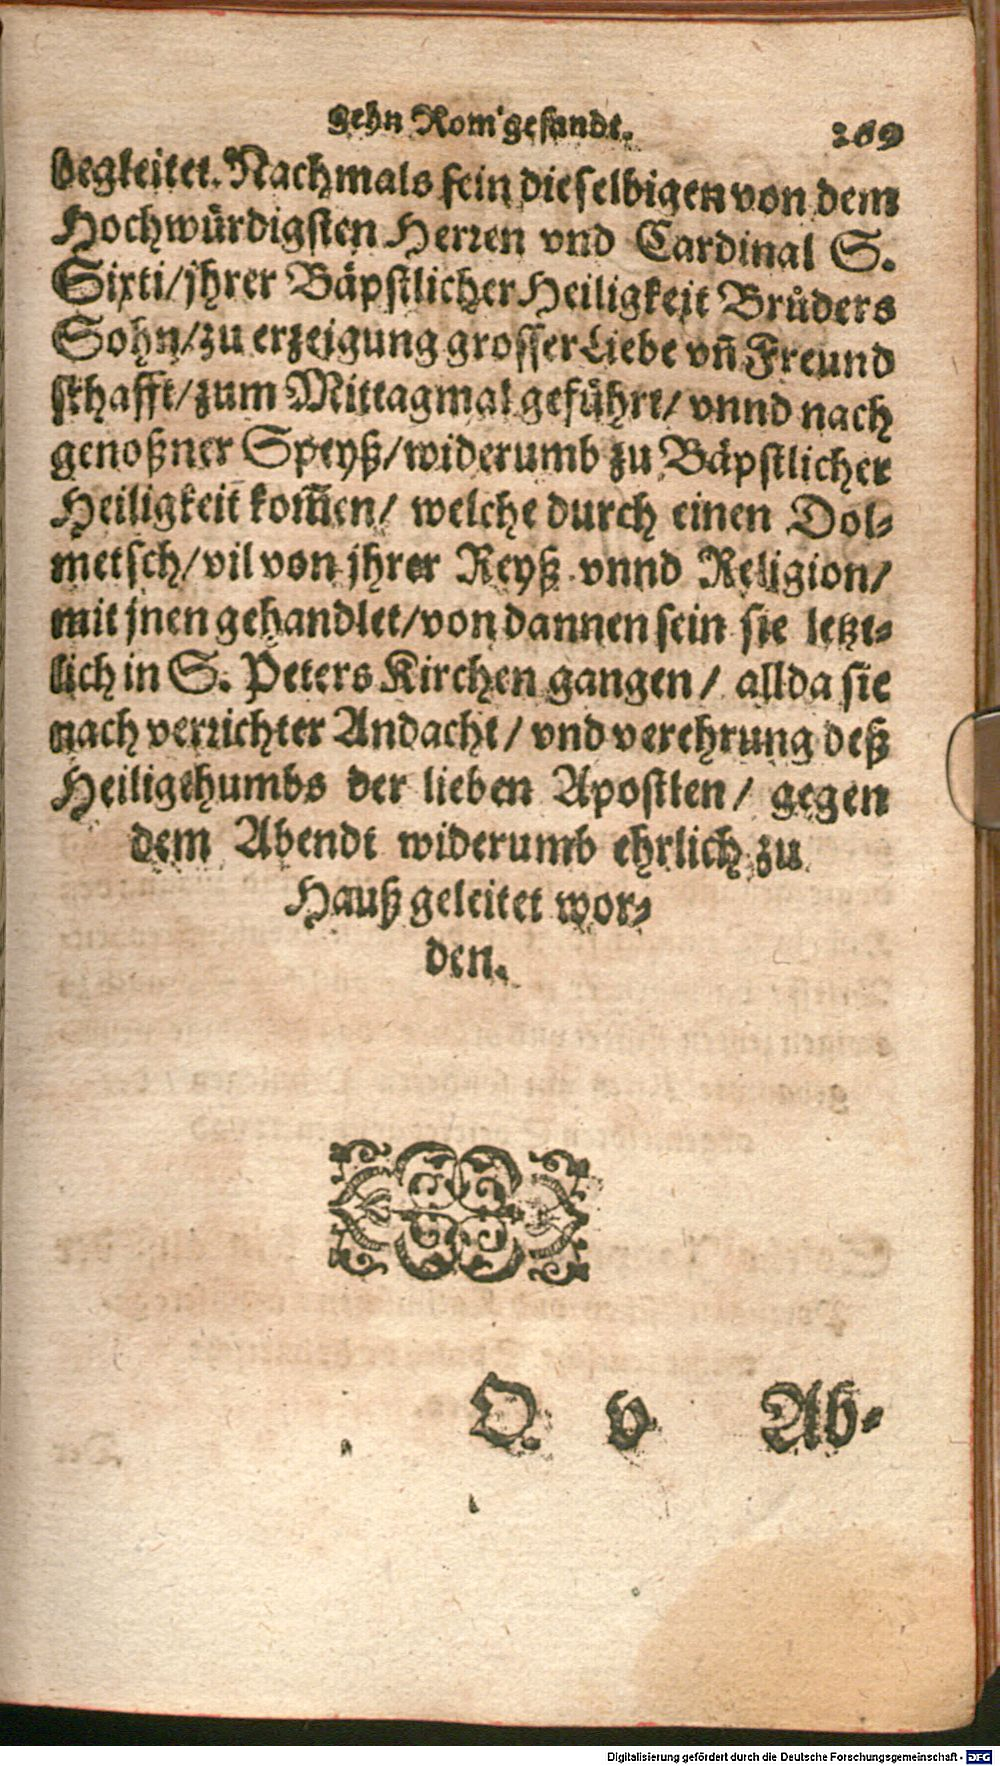 gehn Rom gesandt. 269
begleitet. Nachmals sein dieselbigen von dem
Hochwürdigsten Herren vnd Cardinal S.
Sixti/ jhrer Bäpstlicher Heiligkeit Brůders
Sohn/ zu erzeigung grosser Liebe vñ Freund
schafft/ zum Mittagmal geführt/ vnnd nach
genoßner Speyß/ widerumb zu Bäpstlicher
Heiligkeit kom̃en/ welche durch einen Dol-
metsch/ vil von jhrer Reyß vnnd Religion/
mit jnen gehandlet/ von dannen sein sie letzt-
lich in S. Peters Kirchen gangen/ allda sie
nach verrichter Andacht/ vnd verehrung deß
Heiligthumbs der lieben Apostlen/ gegen
dem Abendt widerumb ehrlich zu
Hauß geleitet wor-
den.
O v Ab-
Digitalisierung gefördert durch die Deutsche Forschungsgemeinschaft - DFG